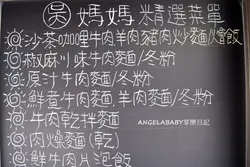 吳媽媽精選菜單
沙茶咖哩牛肉羊肉豬肉炒麵/燴飯
椒麻川味牛肉麵/冬粉
原汁牛肉麵/冬粉
鮮煮牛肉麵.羊肉麵/冬粉
ANGELABABY享樂日記
牛肉乾拌麵
肉燥麵(乾)
鮮牛肉片泡飯